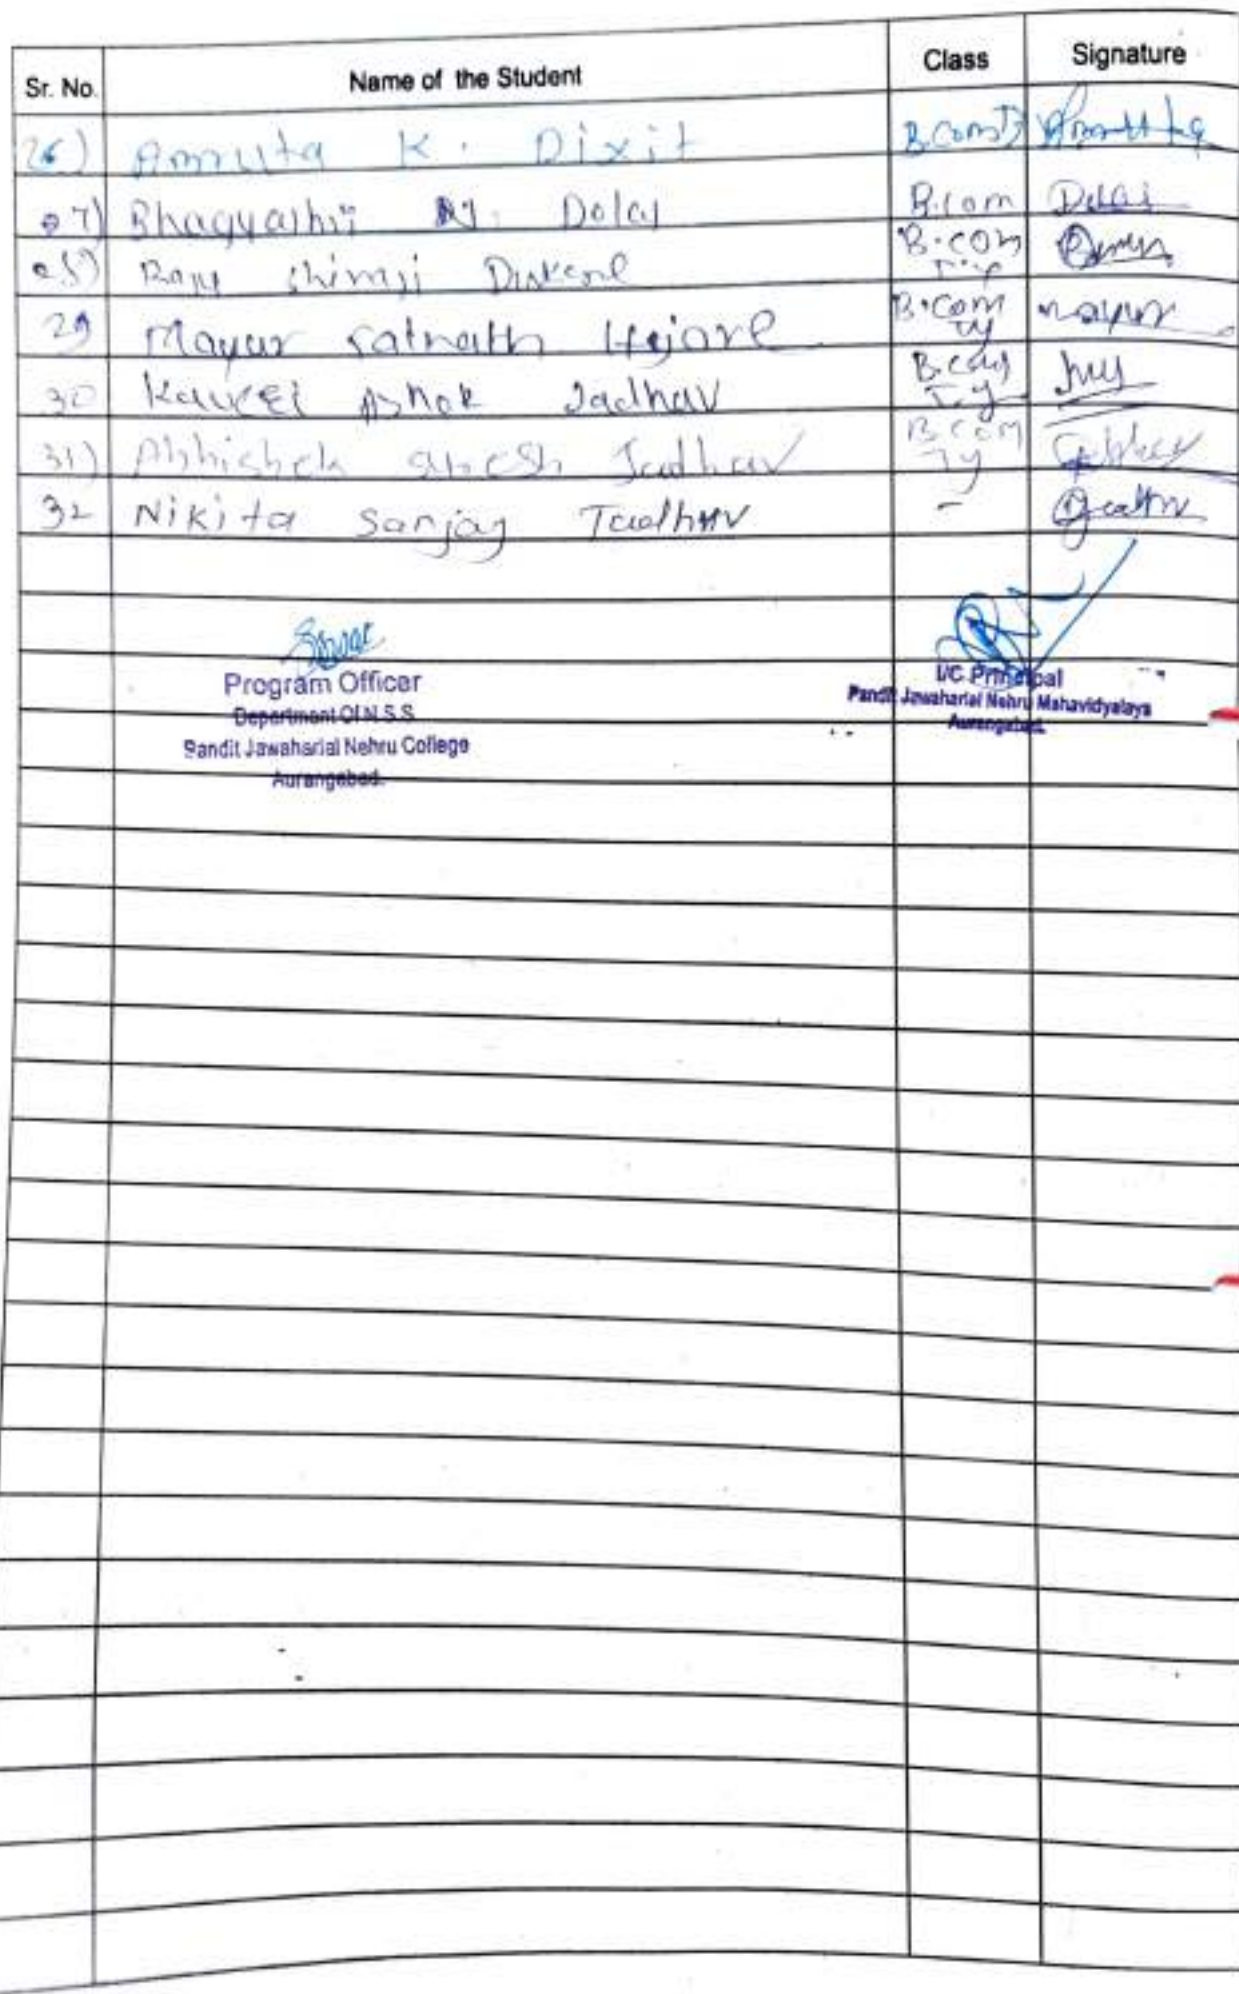 Sr. No. Name of the Student Class Signature
26) Amruta K. Dixit B.com Amrutta
27) Bhagyashri N. Dolas B.com Dolas
28) Raju Shivaji B.com T.Y
29 Mayur Ratnath Hajare B.com Ty mayur
30 Ashok Jadhav B.com T.y
31) Abhishek suresh Jadhav B.com Ty
32 Nikita Sanjay Jadhav -
Program Officer
Department Of N.S.S.
Pandit Jawaharlal Nehru College
Aurangabad.
I/C Principal
Pandit Jawaharlal Nehru Mahavidyalaya
Aurangabad.